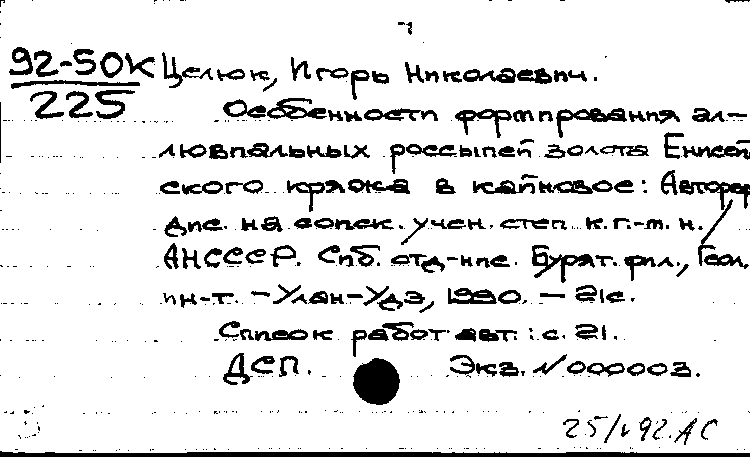 92-50К Целюк, Игорь Николаевич.
225 Особенности формирования ал-
лювиальных россыпей золота Енисей
ского кряжа в кайнозое: Автореф
дис. на соиск. учен. степ. к.г.-м.н./
АНСССР. Сиб. отд-ние. Бурят. фил., Геол.
ин-т. - Улан-Удэ, 1990. - 21с.
Список работ авт.: с. 21.
ДСП. Экз. N 000003.
92.АС